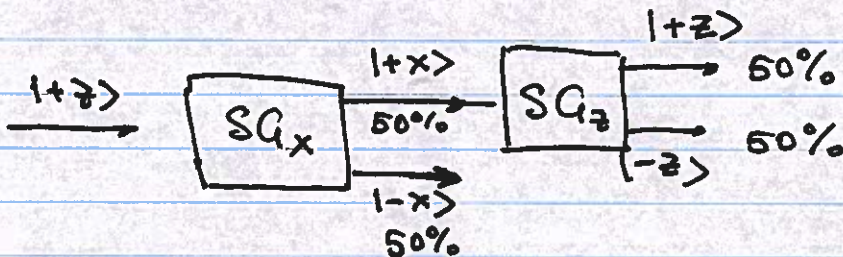 |+z>
SG_x
|+x>
50%
|-x>
50%
SG_z
|+z>
50%
|-z>
50%